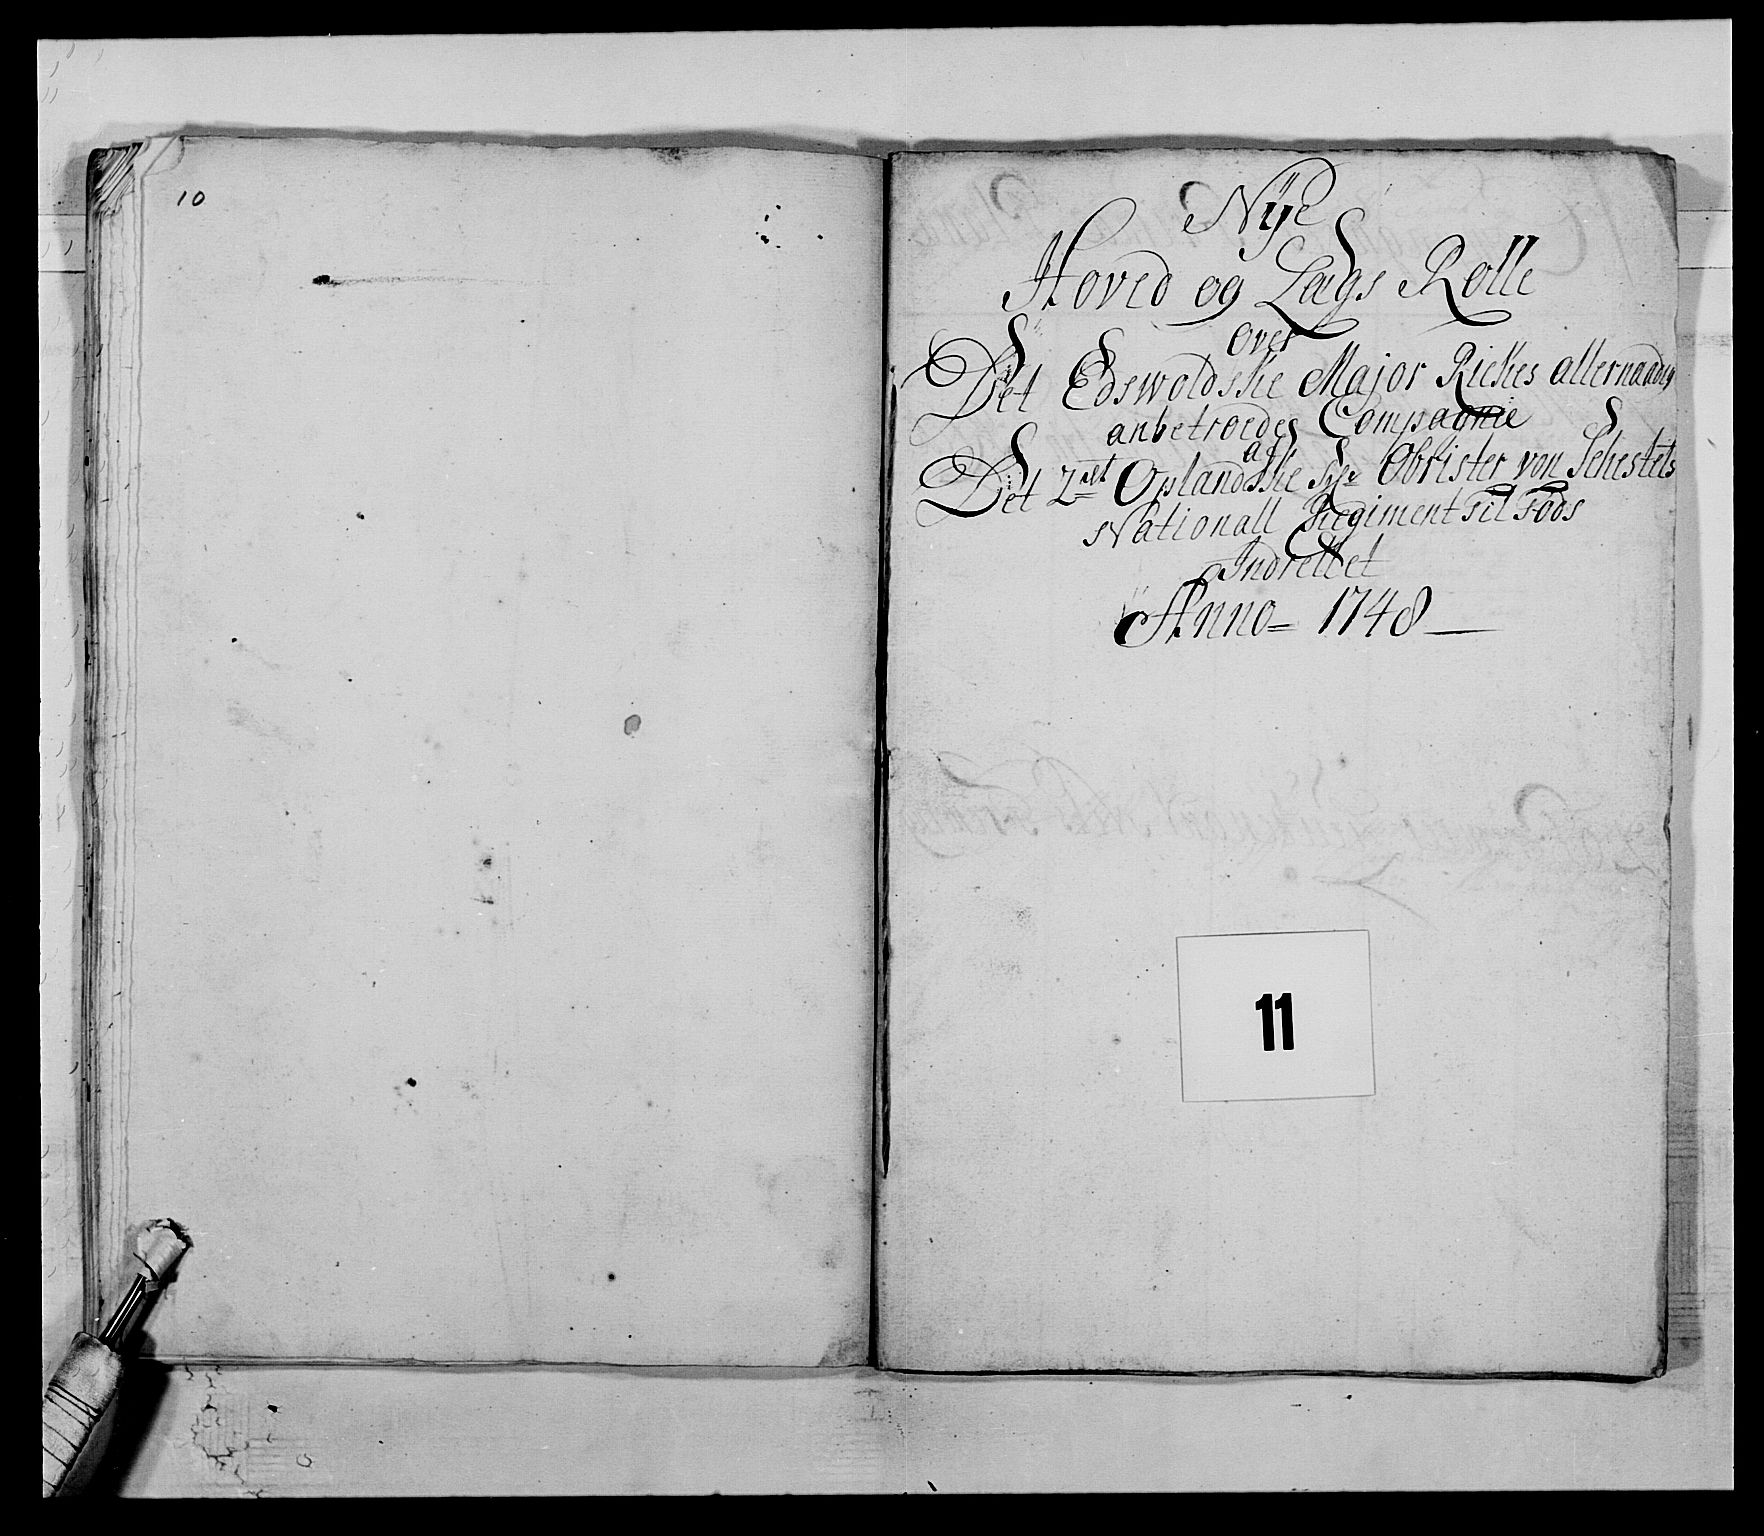 10
Nÿe
Hoved og Lægs Rolle
over
Det Edswoldske Major Rickes allernaadig
anbetroedes Compagnie
af
Det 2det Oplandske Hr Obrister von Sehesteds
Nationall Regiment til Fods
Indrettet
Anno 1748
11